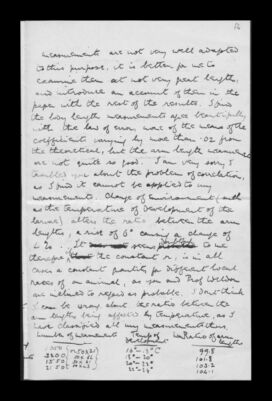 measurements are not very well adapted
to this purpose, it is better for me to
examine them at not very great length,
and introduce an account of them in the
paper with the rest of the results. I find
the body length measurements agree beautifully
with the law of error, none of the means of the
coefficients varying by more than .02 from
the theoretical, but the arm length measurements
are not quite so good. I am very sorry I
troubled you about the problem of correlation,
as I find it cannot be applied to my
measurements. Change of environment (such
as the temperature of development of the
larvae) alters the ratio between the arm
lengths, a rise of 6° causing a change of
It seems to me
therefore, the constant r, is in all
cases a constant quantity for different local
races of an animal, as you and Prof. Weldon
are inclined to regard as probable. I don't think
I can be wrong about the ratio between the
arm lengths being affected by temperature, as I
have classified all my measurements thus
Number of measurements Temp. of development Ratio of arm lengths
99.8
101.8
103.2
104.1